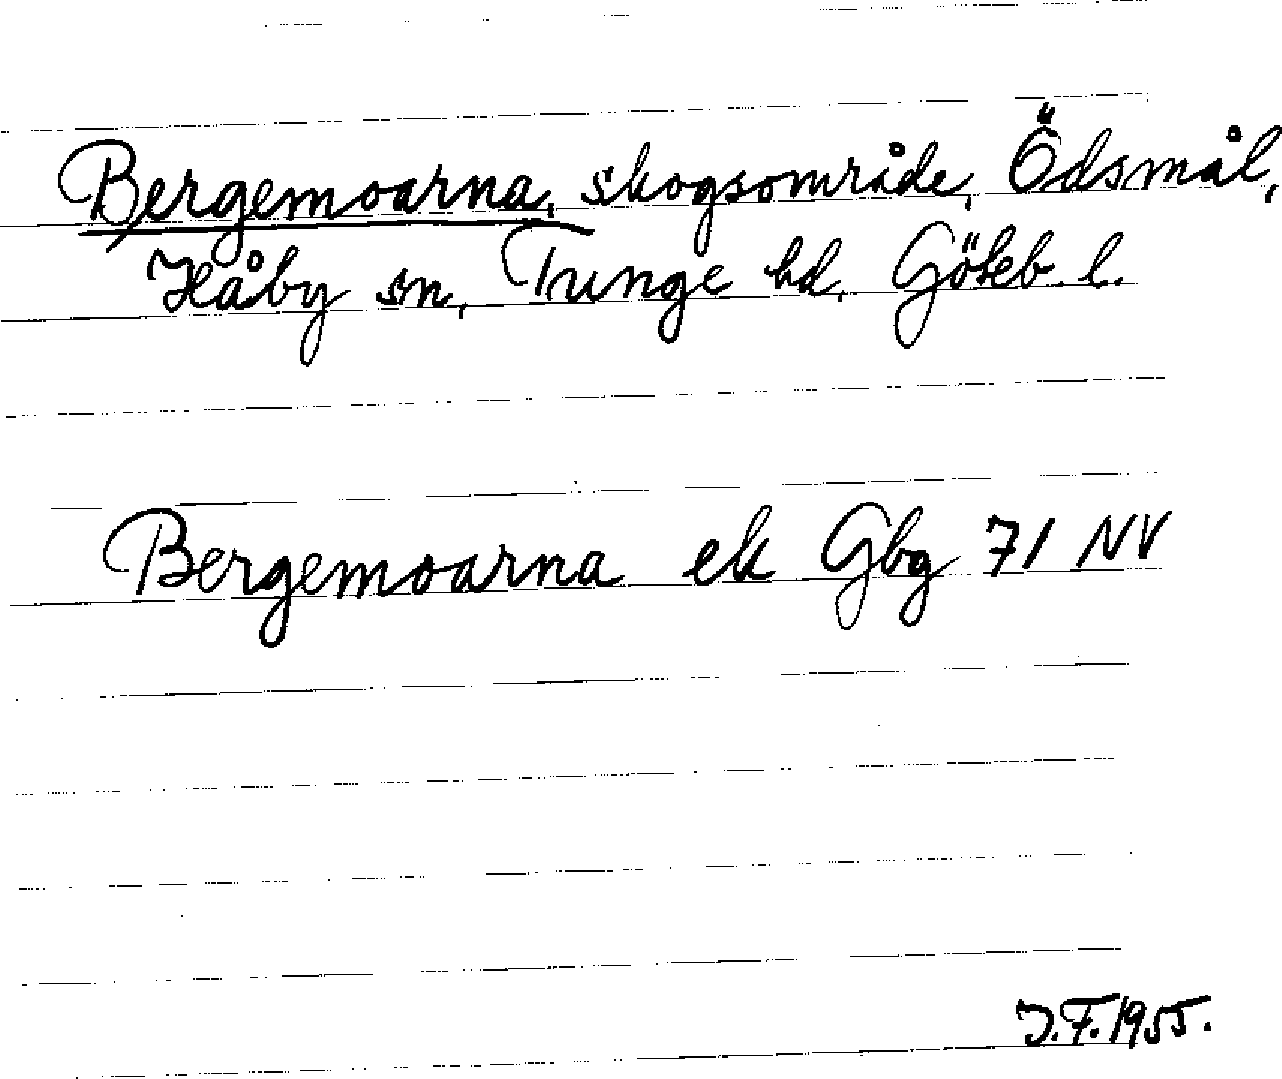 Bergemoarna, skogsområde, Ödsmål,
Håby sn, Tunge hd, Göteb. l.
Bergemoarna ek Gbg 71 NV
J.F. 1955.